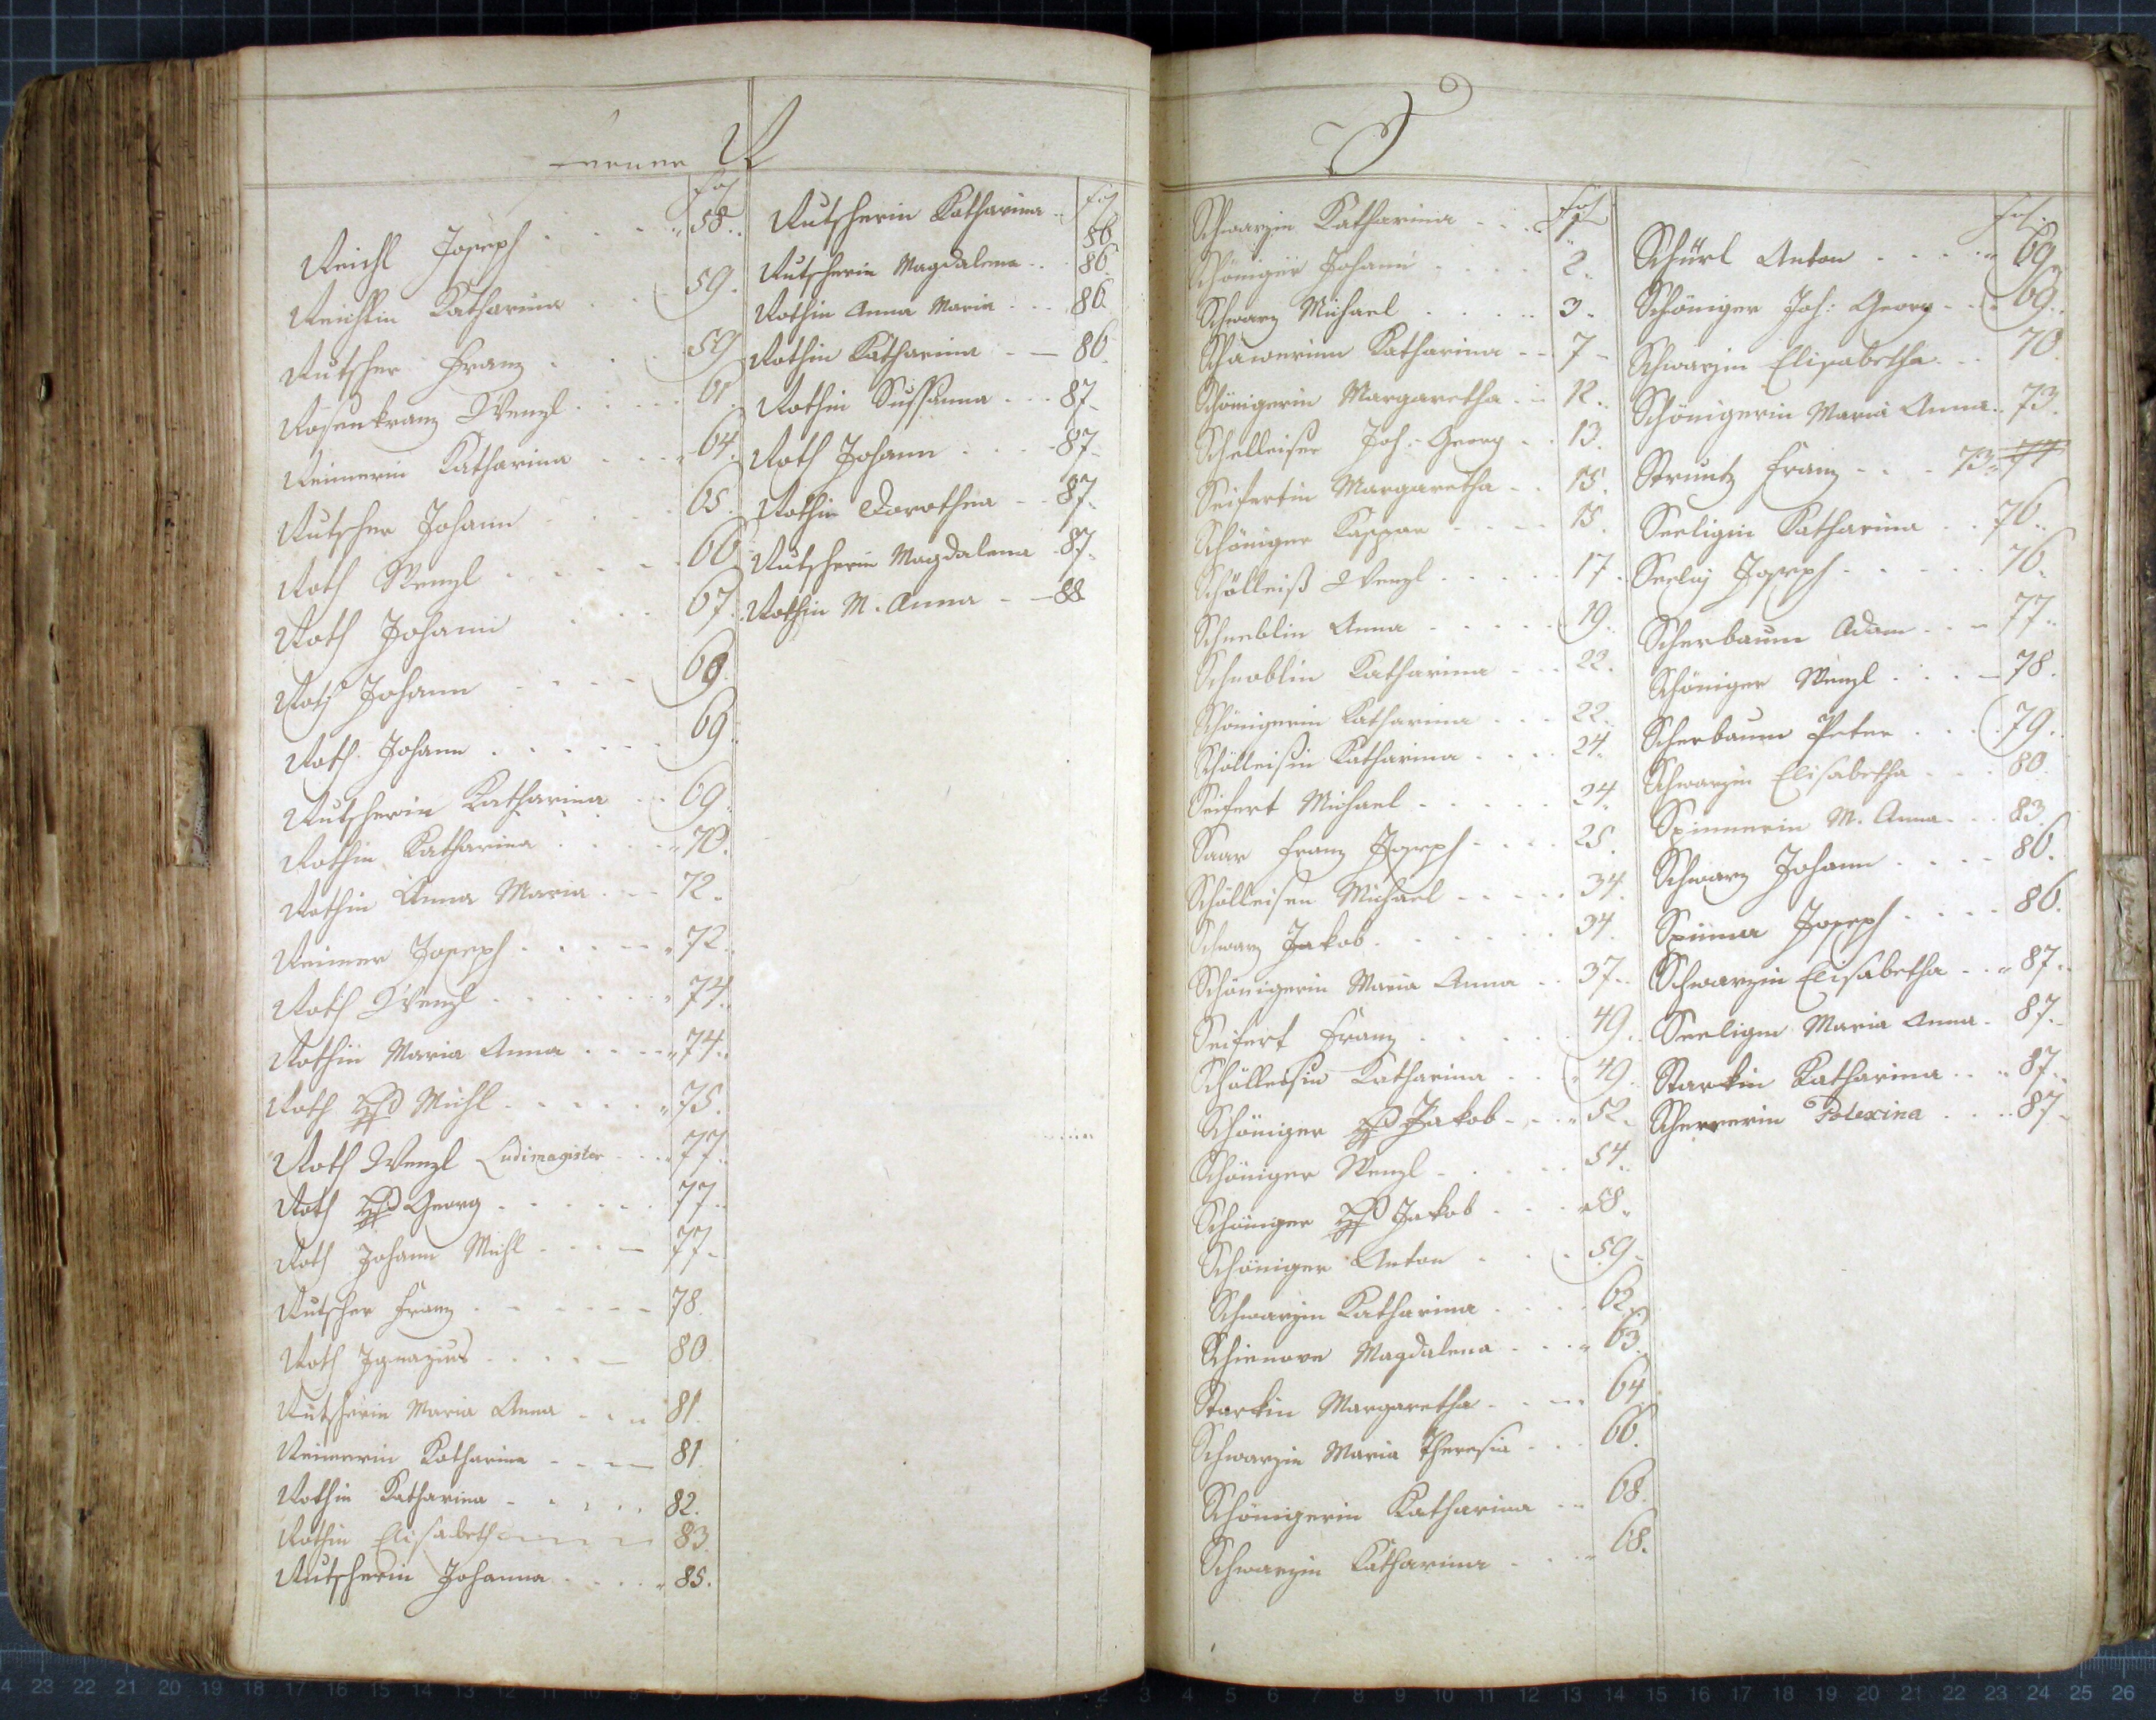 ferner R
Fol
Reichl Joseph 58.
Reichlin Katharina 59.
Rutscher Franz 59
Rosenkranz Wenzl 61.
Reimerin Katharina 64.
Rutscher Johann 65.
Roth Wenzl 66.
Roth Johann 67.
Roth Johann 69.
Roth Johann 69.
Rutscherin Katharina 69.
Rothin Katharina 70.
Rothin Anna Maria 72.
Reimer Joseph 72.
Roth Wenzl 74.
Rothin Maria Anna 74.
Roth Michl 75.
Roth Wenzl Ludimagister 77.
Roth Georg 77.
Roth Johann Michl 77.
Rutscher Franz 78.
Roth Ignazius 80.
Rutscherin Maria Anna 81.
Reimerin Katharina 81.
Rothin Katharina 82.
Rothin Elisabeth 83.
Rutscherin Johanna 85.
Fol
Rutscherin Katharina 86
Rutscherin Magdalena 86.
Rothin Anna Maria 86.
Rothin Katharina 86.
Rothin Sussanna 87.
Roth Johann 87.
Rothin Dorothea 87.
Rutscherin Magdalena 87.
Rothin M. Anna 88
S
Fol
Schwarzin Katharina 1
Schöniger Johann 2.
Schwarz Michael 3.
Katharina 7
Schönigerin Margaretha 12.
Schelleiser Joh. Georg 13.
Seifertin Margaretha 15.
Schöniger Kaspar 15.
Schölleiß Wenzl 17.
Schneblin Anna 19.
Schnoblin Katharina 22.
Schönigerin Katharina 22.
Schölleisin Katharina 24.
Seifert Michael 24.
Saar Franz Joseph 25.
Schölleisen Michael 34.
Schwarz Jakob 34.
Schönigerin Maria Anna 37.
Seifert Franz 49.
Schölleisin Katharina 49.
Schöniger Jakob 52.
Schöniger Wenzl 54.
Schöniger Jakob 58.
Schöniger Anton 59.
Schwarzin Katharina 62.
Magdalena 63.
Starkin Margaretha 64.
Schwarzin Maria Theresia 66.
Schönigerin Katharina 68.
Schwarzin Katharina 68.
Fol.
Schürl Anton 69.
Schöniger Joh: Georg 69.
Schwarzin Elisabetha 70.
Schönigerin Maria Anna 73.
Struntz Franz 73.
Seeligin Katharina 76.
Seelig Joseph 76.
Scherbaum Adam 77.
Schöniger Wenzl 78.
Scherbaum Peter 79.
Schwarzin Elisabetha 80.
Spinnerin M. Anna 83.
Schwarz Johann 86.
Spinner Joseph 86.
Schwarzin Elisabetha 87.
Seeligin Maria Anna 87.
Starkin Katharina 87.
Scherrerin Polexina 87.